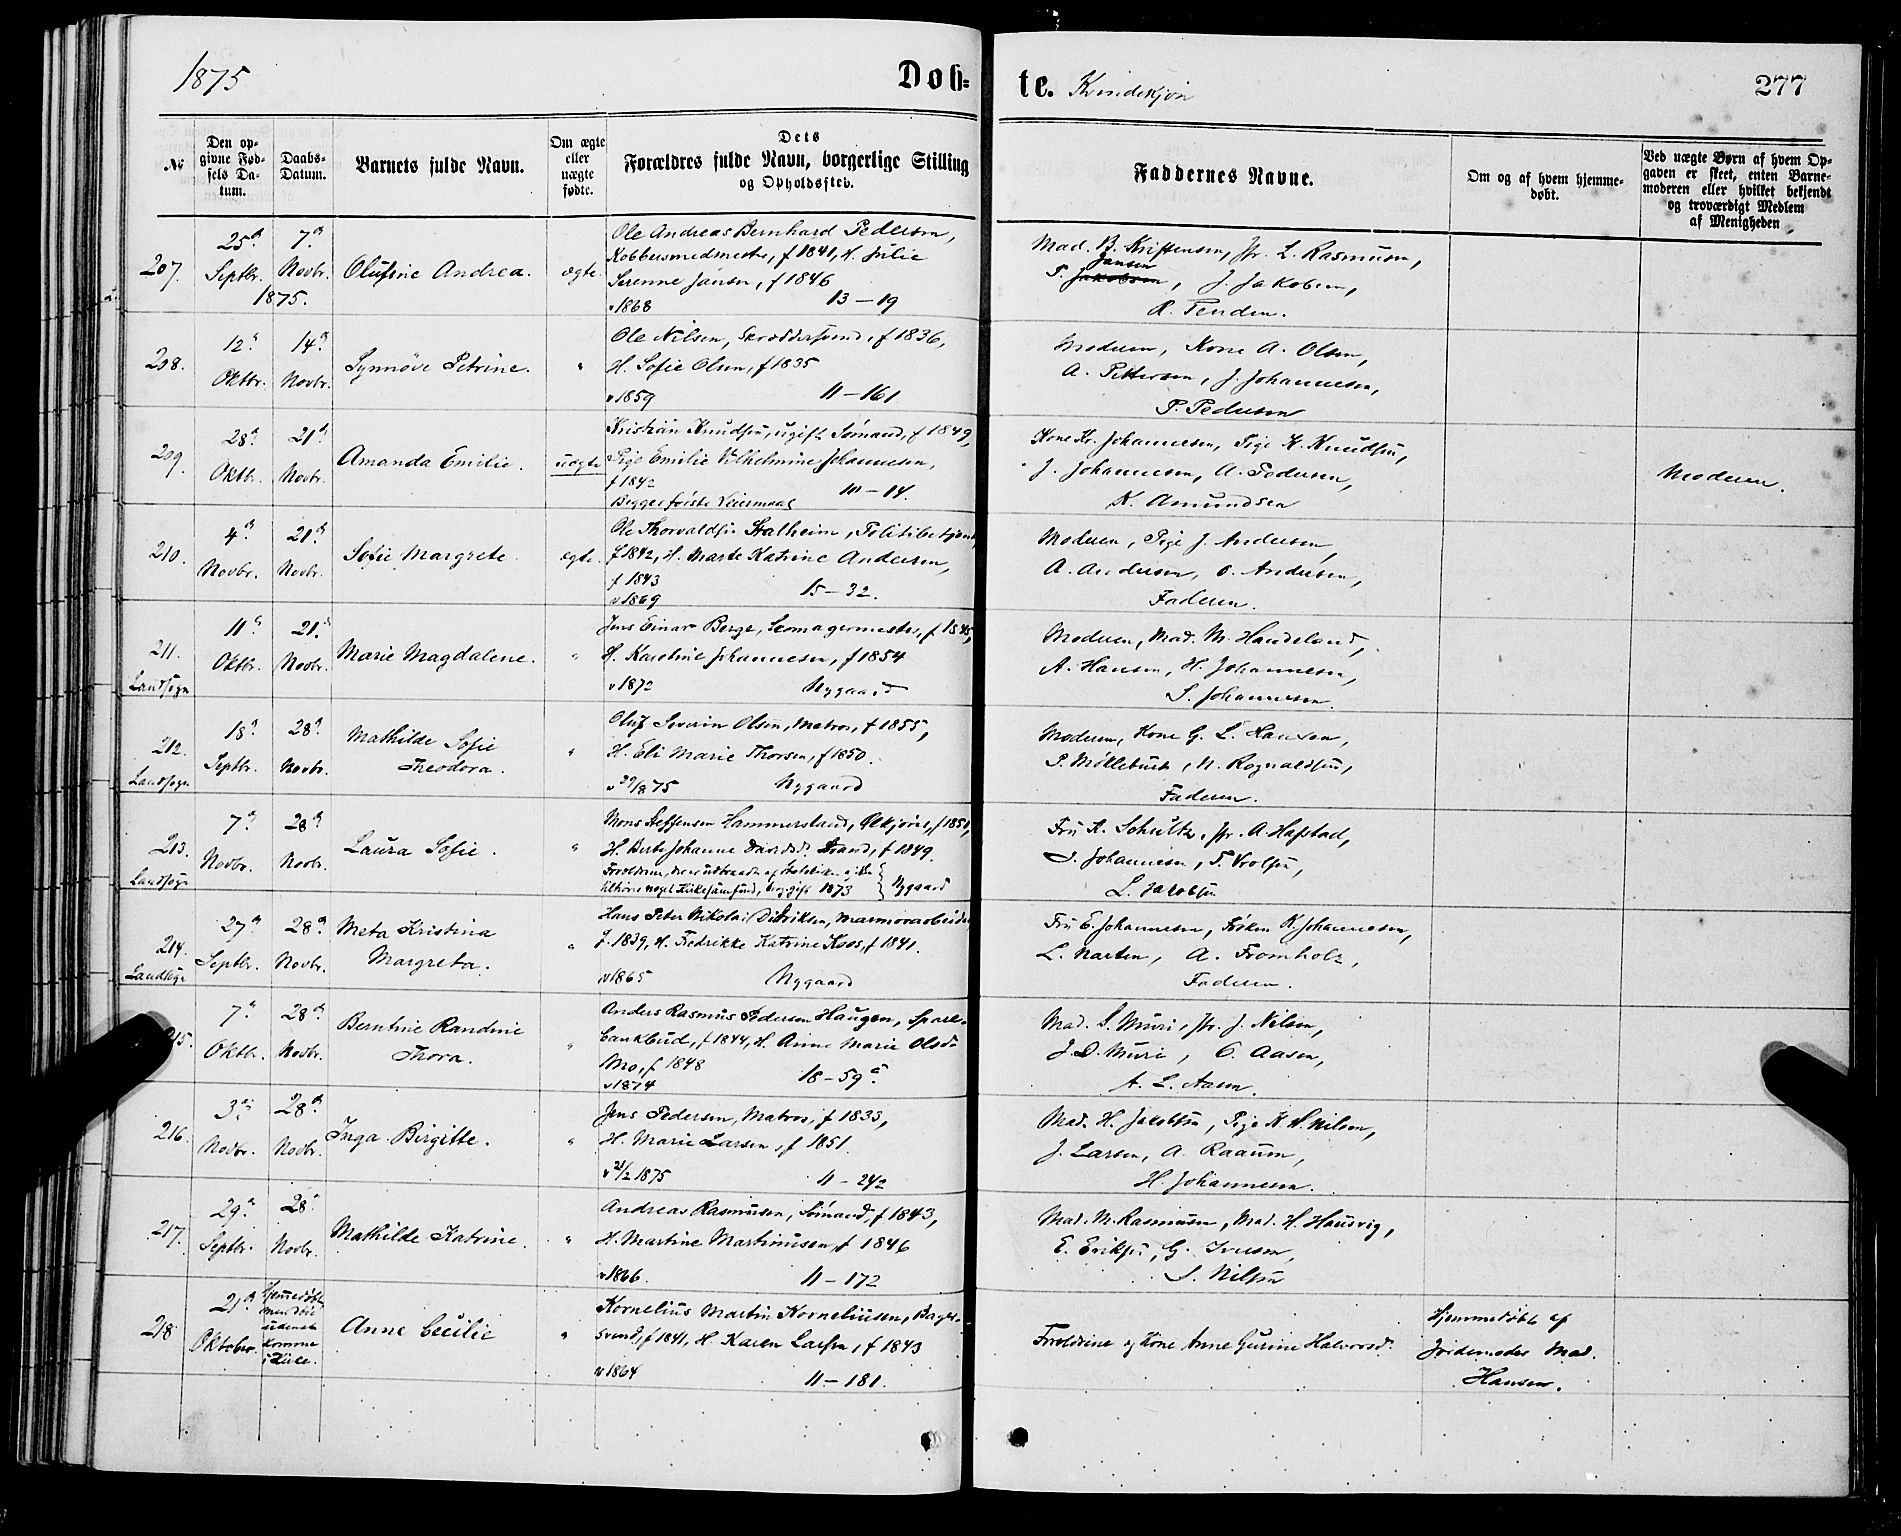 1875
Døb=
te. Kvindekjøn
277
No
Den op-
givne Fød-
sels Da-
tum.
Daabs-
Datum.
Barnets fulde Navn.
Om ægte
eller
uægte
fødte.
Dets
Forældres fulde Navn, borgerlige Stilling
og Opholdssted.
Faddernes Navne.
Om og af hvem hjemme-
døbt.
Ved uægte Børn af hvem Op-
gaven er skeet, enten Barne-
moderen eller hvilket bekjendt
og troværdigt Medlem
af Menigheden
207. 25d Septbr. 7d Novbr. 1875. Olufine Andrea. ægte
Ole Andreas Bernhard Pedersen,
Kobbersmedmester, f 1841, H. Julie
Serenne Jansen, f 1846
v 1868 13-19
Mad. B. Kristensen, Jfr. L. Rasmusen,
T. Jakobsen Jansen, J. Jakobsen,
R. Tenden.
208. 12d Oktbr. 14d Novbr. Synnøve Petrine. "
Ole Nilsen, Skræddersvend, f 1836,
H. Sofie Olsen, f 1835
v 1859 11-161
Moderen, Kone A. Olsen,
A. Pettersen, J. Johannesen,
P. Pedersen
209. 28d Oktbr. 21d Novbr. Amanda Emilie. uægte
Kristian Knudsen, ugift Sømand, f 1849,
Pige Emilie Vilhelmine Johannesen,
f 1842 10-14.
Begges første Leiermaal
Kone Kr. Johannesen, Pige K. Knudsen,
J. Johannesen, A. Pedersen,
K. Amundsen
Moderen.
210. 4d Novbr. 21d Novbr. Sofie Margrete. ægte.
Ole Thorvaldsen Stalheim, Politibetjent,
f 1842, H. Marte Katrine Andersen,
f 1843
v 1869 15-32.
Moderen, Pige J. Andersen,
A. Andersen, O. Andersen,
Faderen.
211. Landsogn 11d Oktbr. 21d Novbr. Marie Magdalene. "
Jens Einar Berge, Skomagermester, f 1845,
H. Karoline Johannesen, f 1854
v 1872 Nygaard
Moderen, Mad. M. Haudeland,
A. Hansen, H. Johannesen,
S. Johannesen.
212. Landsogn 18d Septbr. 28d Novbr. Mathilde Sofie
Theodora. "
Oluf Severin Olsen, Matros, f 1855,
H. Eli Marie Thorsen, f 1850.
v 29/8 75 Nygaard
Moderen, Kone G. L. Hansen,
P. Mølleburst, N. Rognaldsen,
Faderen.
213. Landsogn 7d Novbr. 28d Novbr. Laura Sofie. "
Mons Steffensen Hammersland, f 1851,
H. Berte Johanne Davidsd. Strand, f 1849.
Forældrene, der er udtraadt af Statskirken og ikke
tilhører noget Kirkesamfund, borg. gift 1873 Nygaard
Fru K. Schultz, Jfr. A. Hafstad,
J. Johannesen, T. Trolsen,
L. Jacobsen
214. Landsogn 27d Septbr. 28d Novbr. Meta Kristina
Margreta. "
Hans Peter Nikolai Didriksen, Marmorarbeider,
f. 1839, H. Fredrikke Katrine Koos, f 1841.
v 1865 Nygaard
Fru E. Johannesen, Frøken K. Johannesen,
L. Narten, A. Fromholz,
Faderen.
215. 7d Oktbr. 28d Novbr. Berntine Randine
Thora. "
Anders Rasmus Pedersen Haugen, Spare-
bankbud, f 1844, H. Anne Marie Olsd.
Mo, f 1848
v 1874 18-59c.
Mad. S. Muri, Jfr. J. Nilsen,
J. D. Muri, C. Aasen,
A. L. Aasen.
216. 3d Novbr. 28d Novbr. Inga Birgitte. "
Jens Pedersen, Matros, f 1833,
H. Marie Larsen, f 1851.
v 21/2 1875 11-242
Mad. H. Jakobsen, Pige K H. Nilsen,
J. Larsen, A. Raaum,
H. Johannesen.
217. 29d Septbr. 28d Novbr. Mathilde Katrine. "
Andreas Rasmusen, Sømand, f 1843,
H. Martine Martinusen, f 1846
v 1866. 11-172
Mad. M. Rasmusen, Mad. H. Haudvig,
E. Eriksen, G. Iversen,
S. Nilsen
218. 21d Oktober. Hjemmedøbt
men døde
udenat
komme
i Kirke. Anne Cecilie "
Kornelius Martin Korneliusen, Bager-
svend, f 1841, H. Karen Larsen, f 1843
v 1864 11-181.
Forældrene og Kone Anne Gurine Halvorsd.
Hjemmedøbt af
Jordemoder Mad.
Hansen.